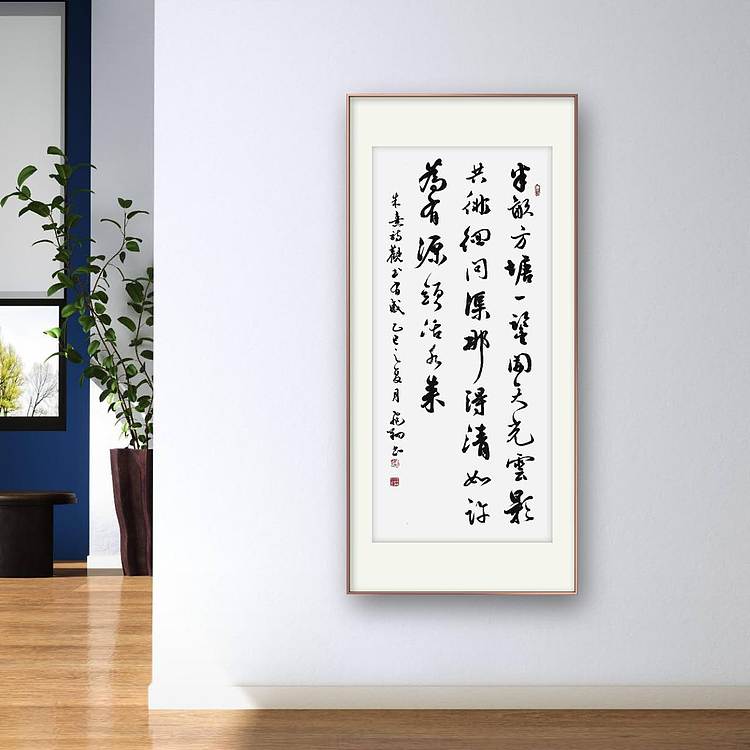 半畝方塘一鑒開天光雲影
共徘徊問渠那得清如許
為有源頭活水來
朱熹詩觀書有感乙巳之夏月書